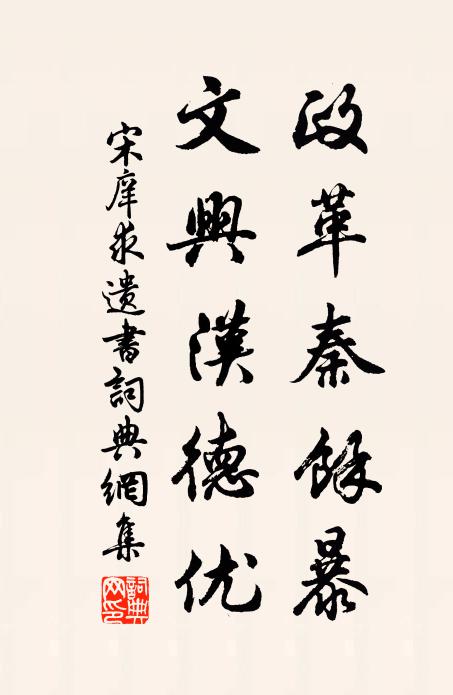 政革秦餘暴
文興漢德优
宋庠求遺書詞典網集
詞典网印